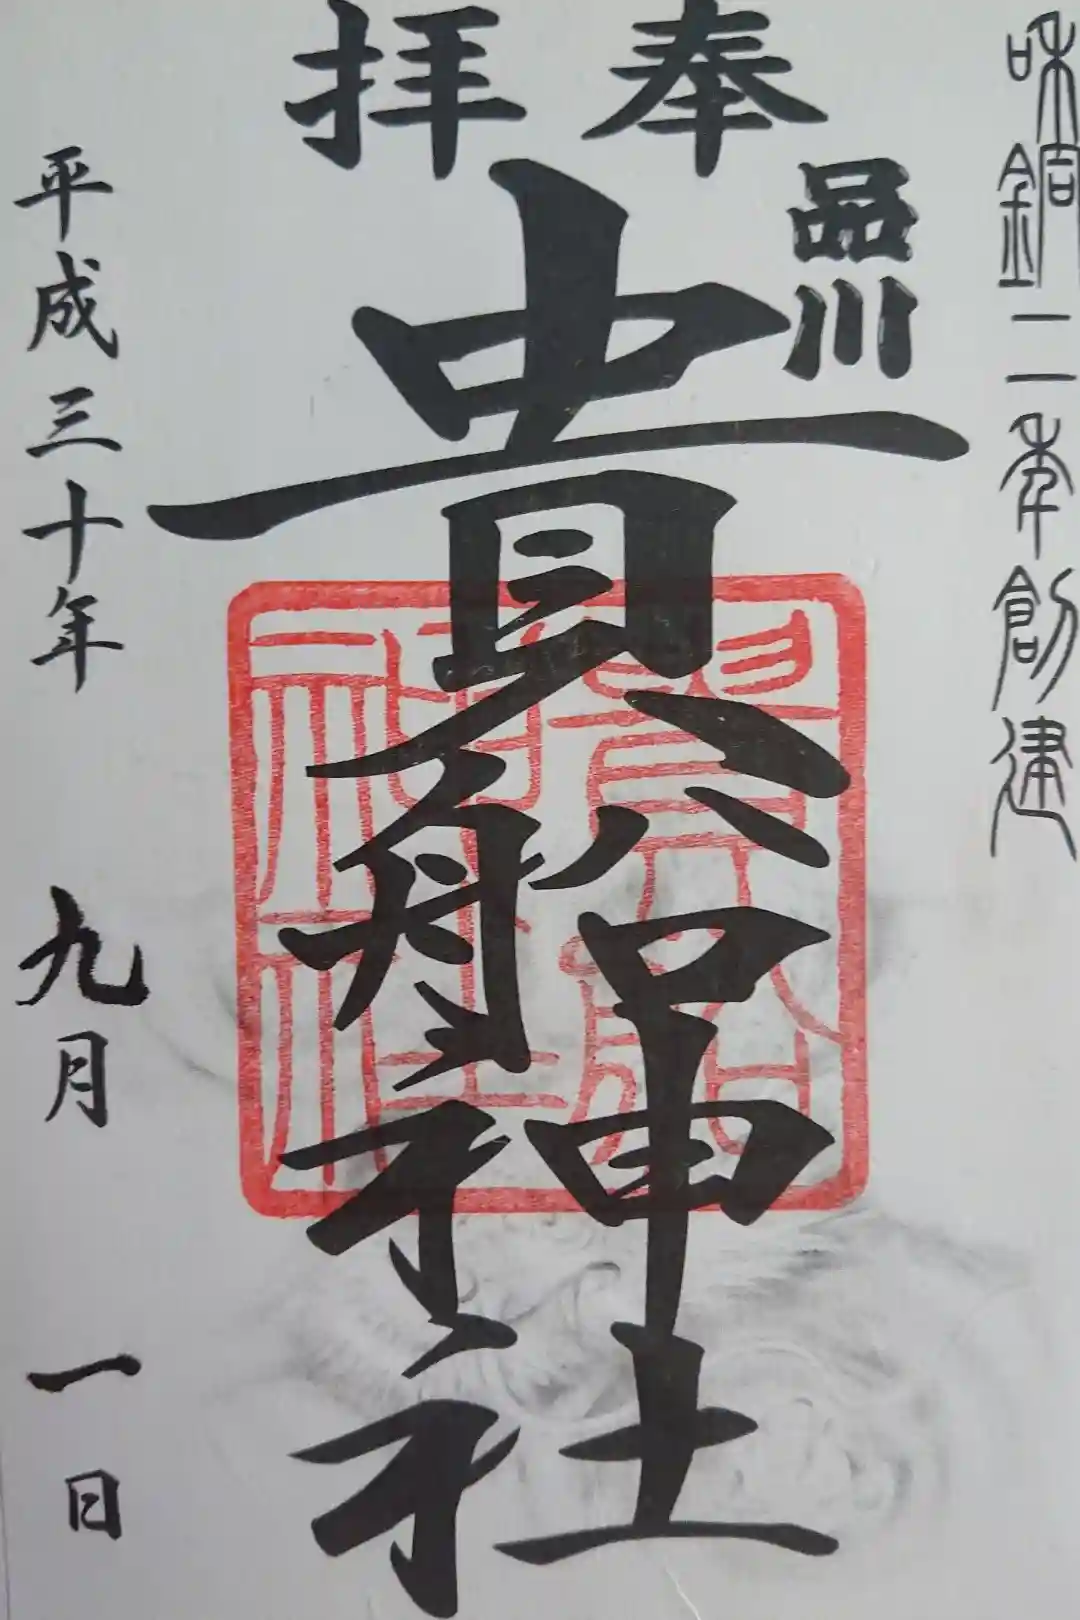 和銅二年創建
奉拝
品川
貴船神社
貴船
神社
平成三十年 九月 一日